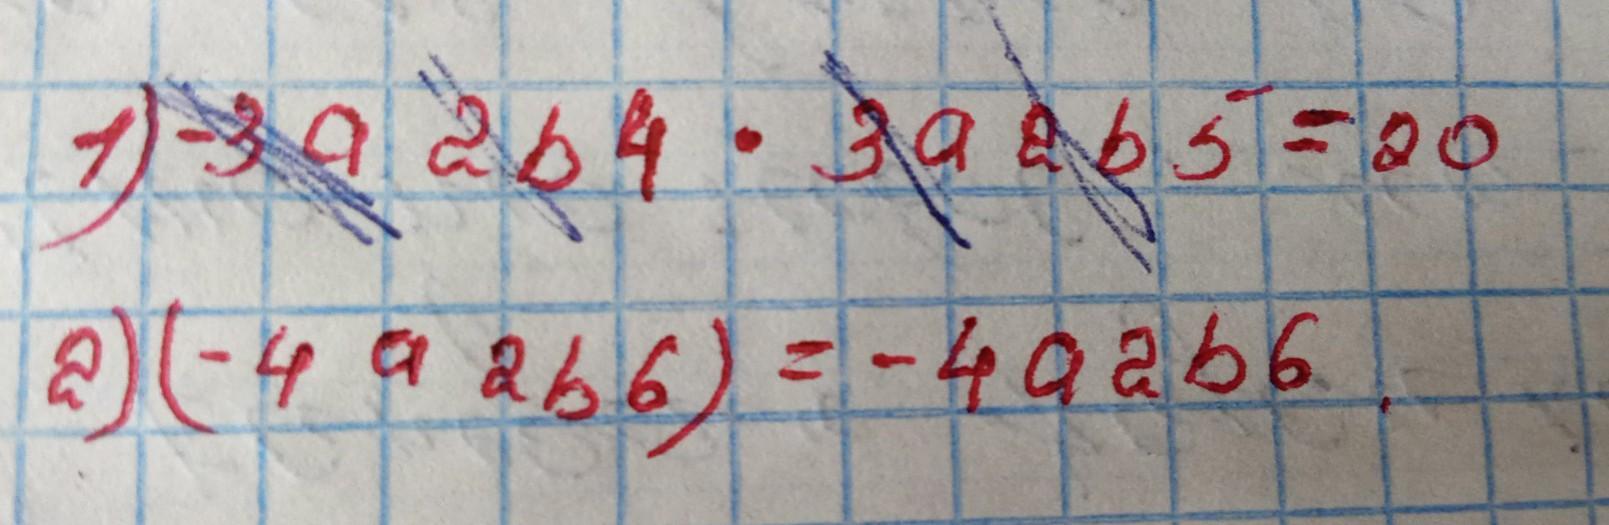 1) -3a 2b4 · 3a 2b5 = 20
2) (-4 a 2b6) = -4a2b6.